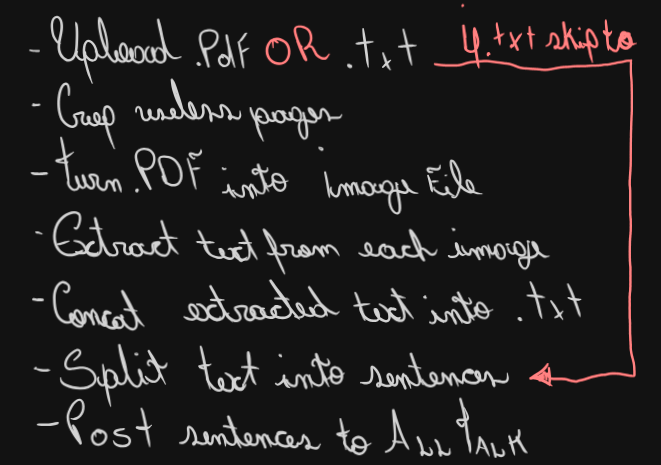 - Upload .Pdf OR .txt if .txt skip to
- Crop useless pages
- turn .PDF into image File
- Extract text from each image
- Concat extracted text into .txt
- Split text into sentences
- Post sentences to ALLTALK